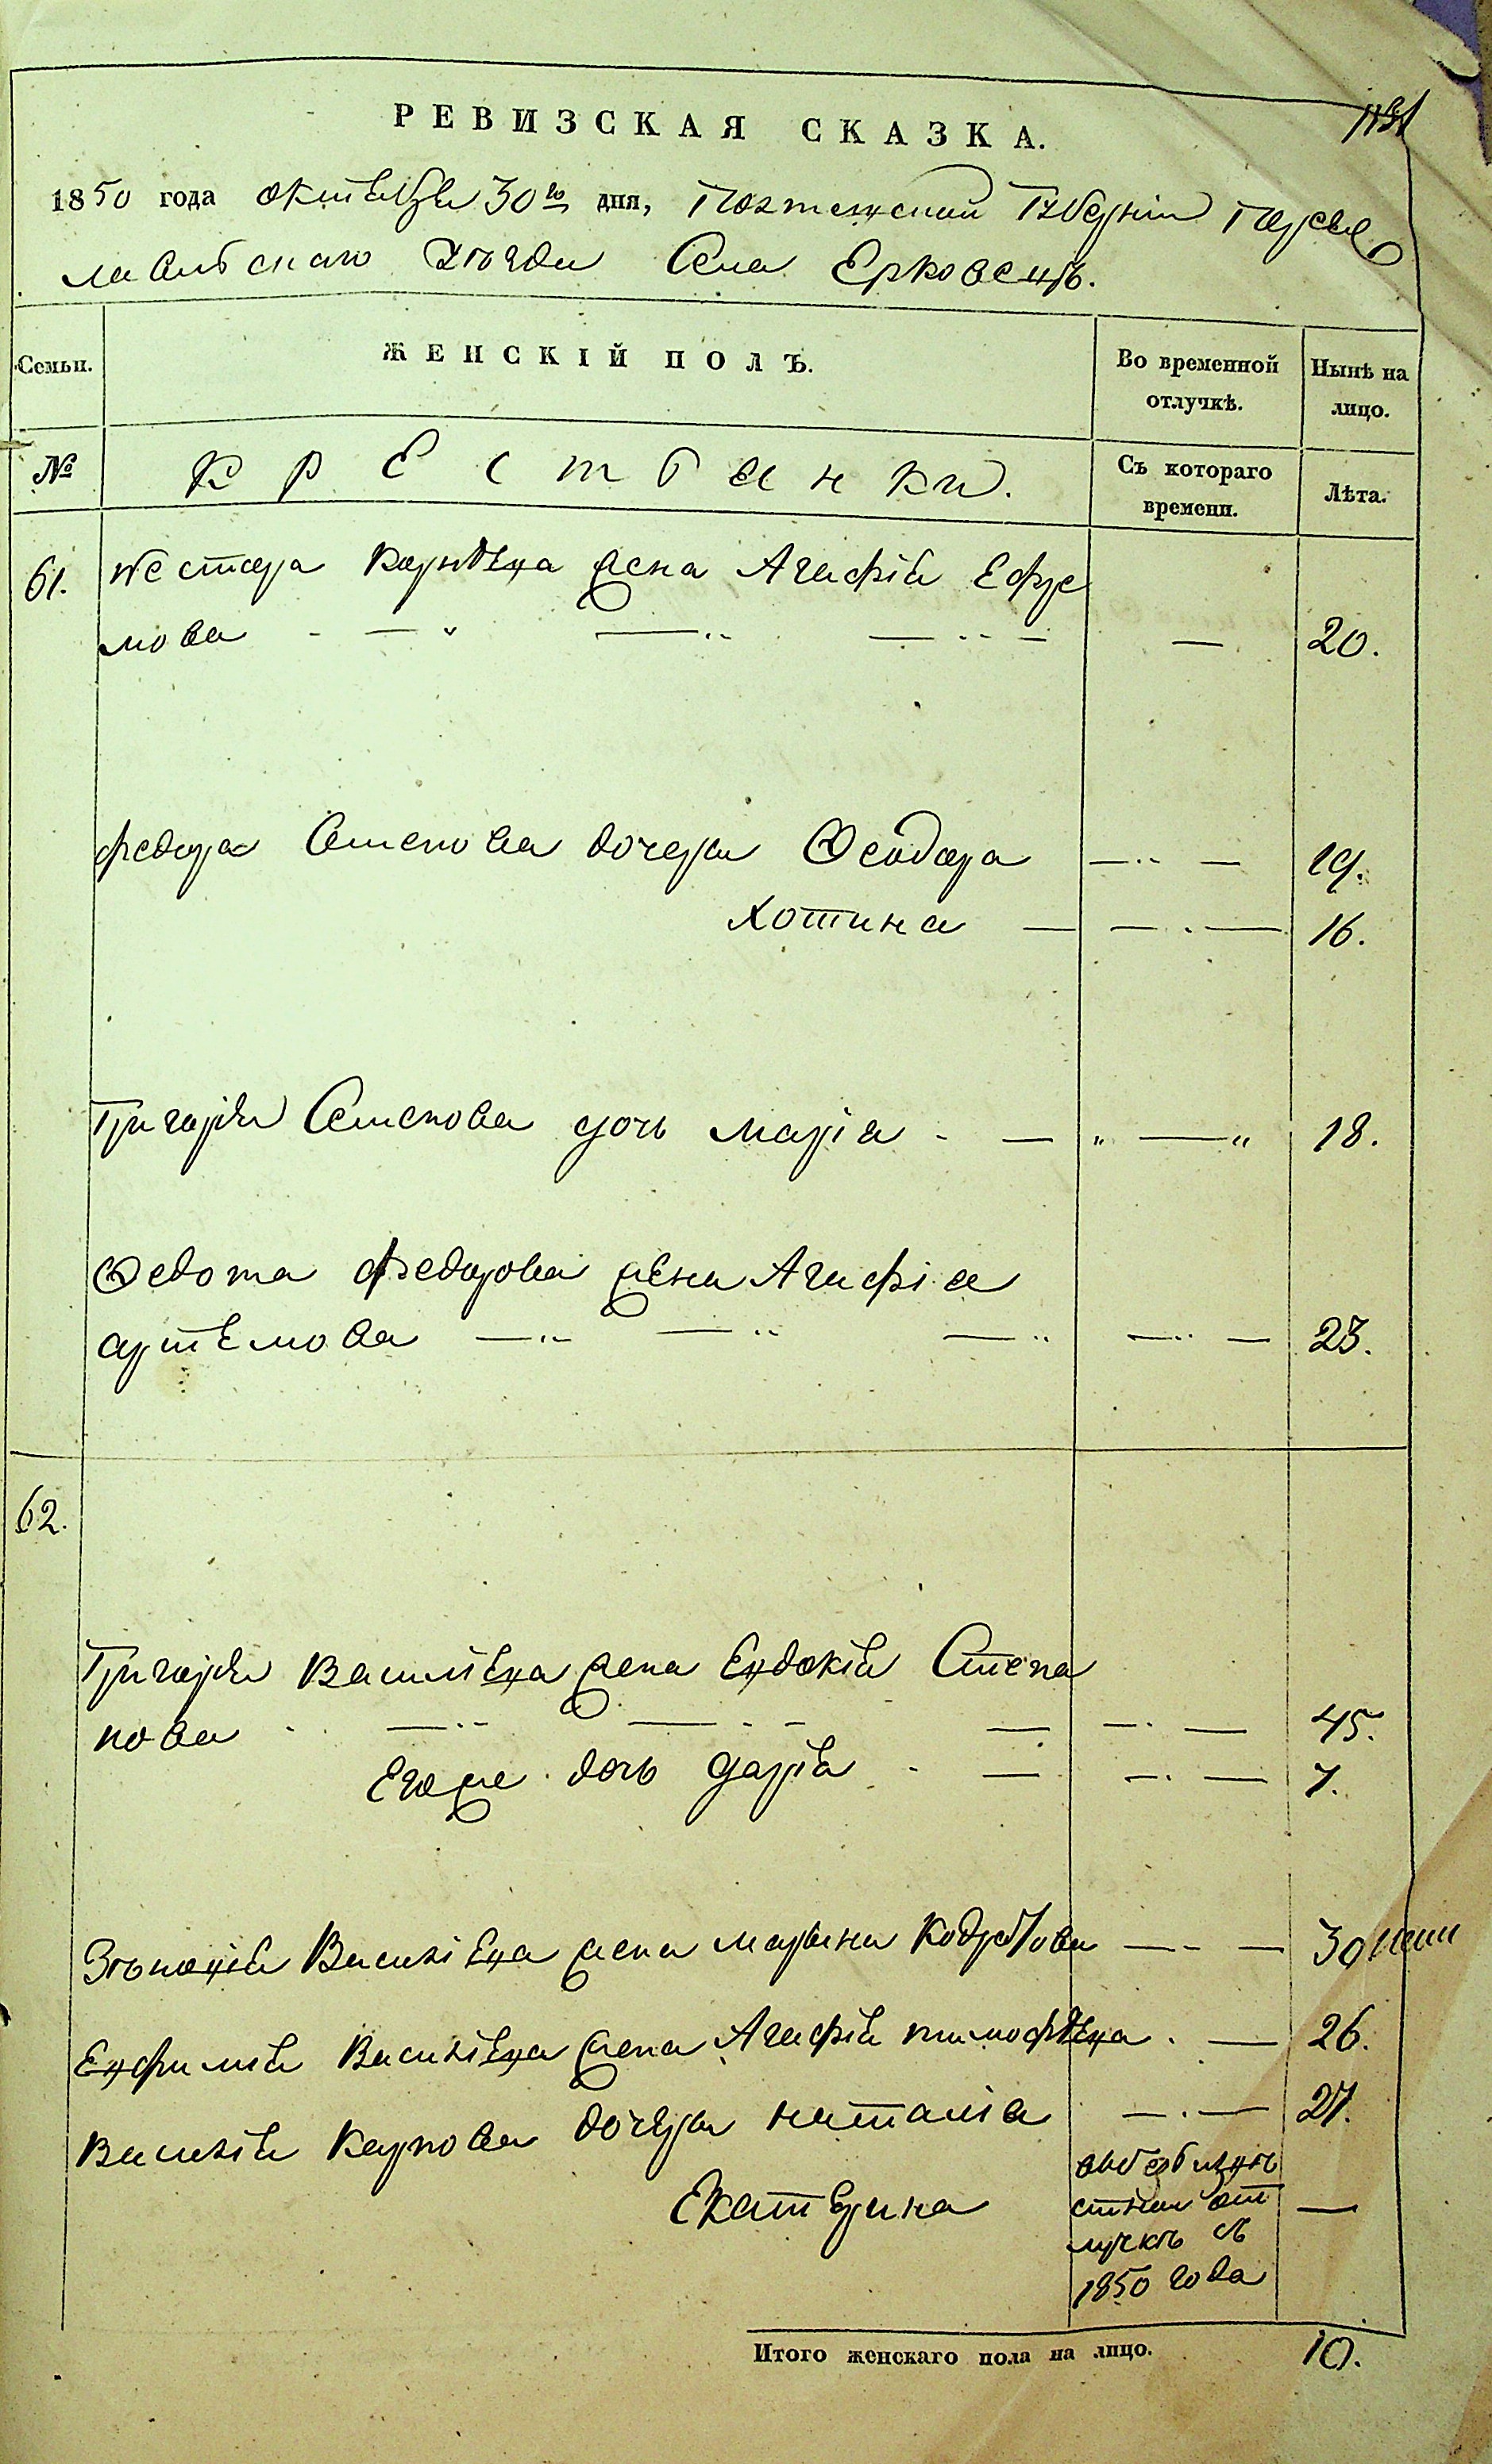 РЕВИЗСКАЯ СКАЗКА.
1850 года октебря 30го дня, Полтавской Губерніи Переяс
лавскаго Уѣзда Села Ерковецъ.
Семьи. ЖЕНСКІЙ ПОЛЪ. Во временной отлучкѣ. Нынѣ на лицо.
№ Крестьянки. Съ котораго времени. Лѣта.
61. Нестора Корнѣева жена Агафія Ефре
мова — — — — 20.
Федора Семенова дочери Феодора — — 19.
Хотина — — — 16.
Григорія Семенова дочь Марія — — 18.
Федота Федорова жена Агафіа
Артемова — — — — — 23.
62.
Григорія Василіева жена Евдокія Степа
нова — — — — — 45.
Егоже дочь Дарія — — — 7.
Василіева жена Марина — — 30
Евфимія Василіева жена Агафія Тимофѣева — 26.
Василія Карпова дочери Наталіа — — 27.
Екатерина —
отлучкѣ съ
1850 года
Итого женскаго пола на лицо. 10.